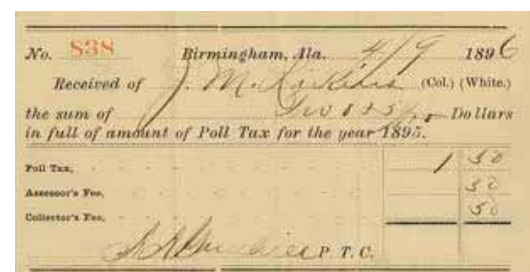 No. 838 Birmingham, Ala. 4/9 1896
Received of J. M. (Col.) (White.)
the sum of Two & 5/10 Dollars
in full of amount of Poll Tax for the year 1895.
Poll Tax, 1 50
Assessor's Fee, 50
Collector's Fee, 50
P. T. C.